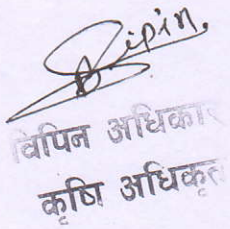 Bipin.
विपिन अधिकार
कृषि अधिकृत